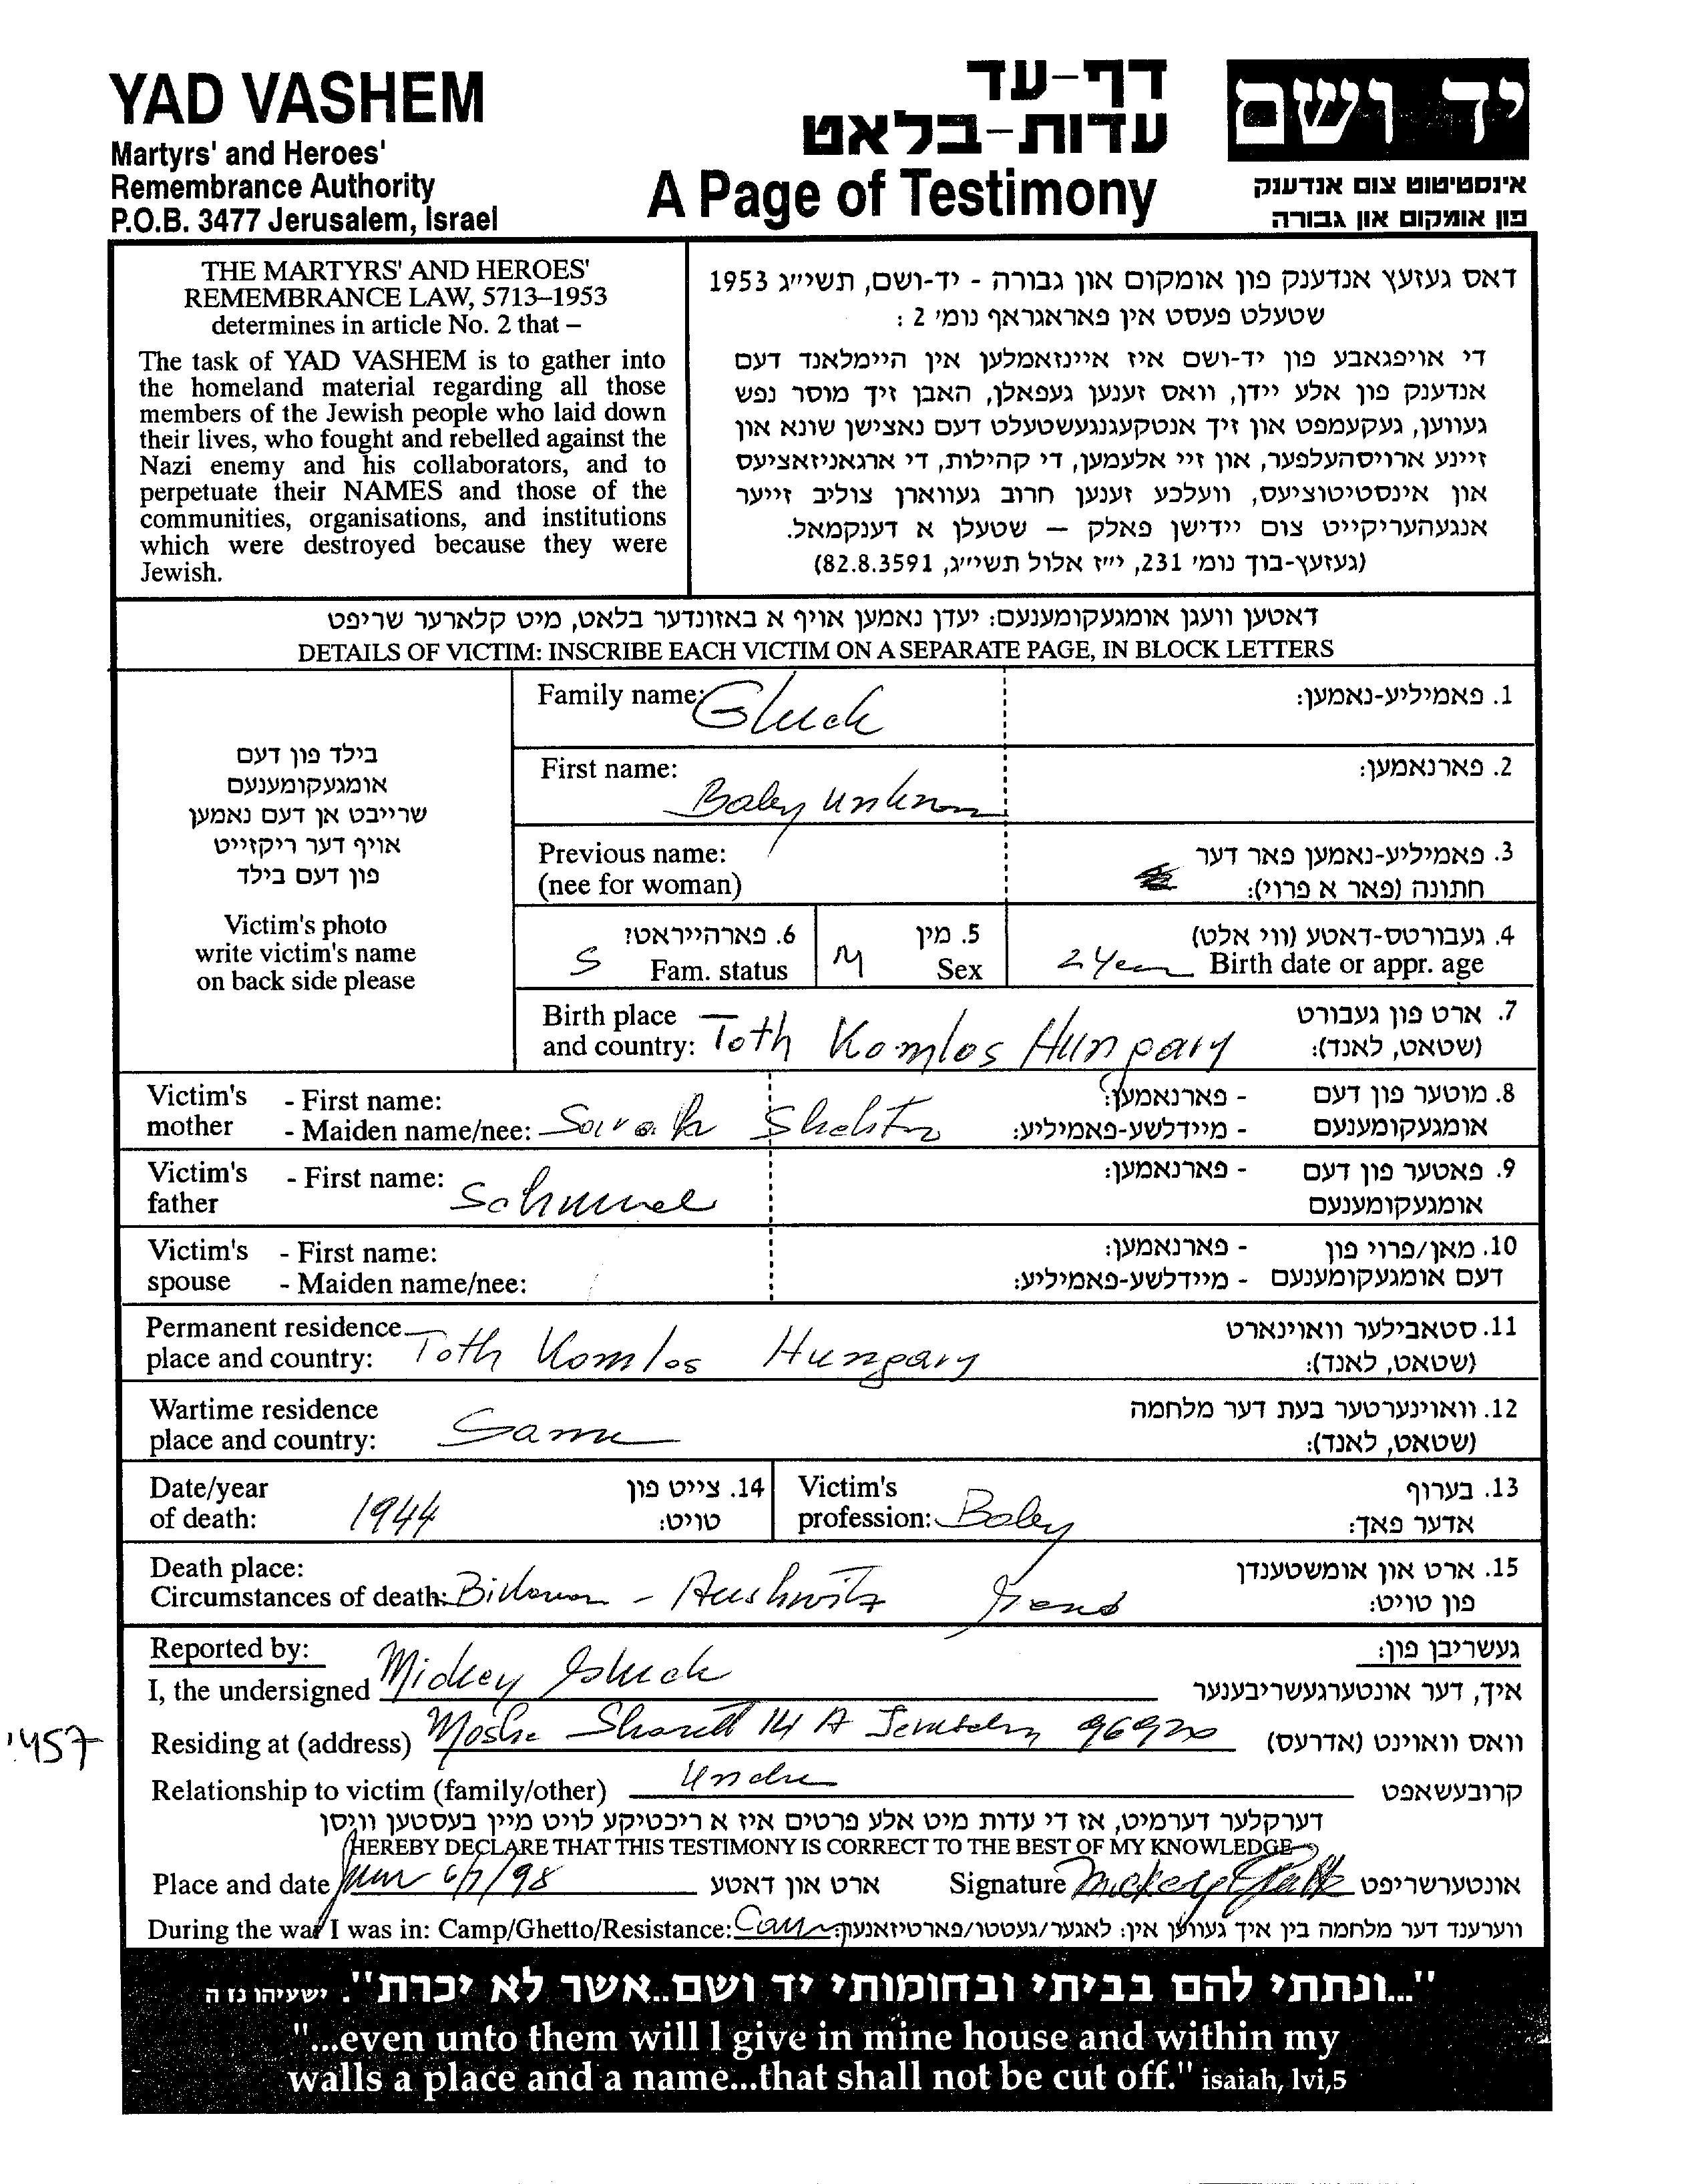 YAD VASHEM
Martyrs' and Heroes'
Remembrance Authority
P.O.B. 3477 Jerusalem, Israel
דף-עד
עדות-בלאט
A Page of Testimony
יד ושם
אינסטיטוט צום אנדענק
פון אומקום און גבורה
THE MARTYRS' AND HEROES'
REMEMBRANCE LAW, 5713–1953
determines in article No. 2 that –
The task of YAD VASHEM is to gather into
the homeland material regarding all those
members of the Jewish people who laid down
their lives, who fought and rebelled against the
Nazi enemy and his collaborators, and to
perpetuate their NAMES and those of the
communities, organisations, and institutions
which were destroyed because they were
Jewish.
דאס געזעץ אנדענק פון אומקום און גבורה - יד-ושם, תשי״ג 1953
שטעלט פעסט אין פאראגראף נומ׳ 2 :
די אויפגאבע פון יד-ושם איז איינזאמלען אין היימלאנד דעם
אנדענק פון אלע יידן, וואס זענען געפאלן, האבן זיך מוסר נפש
געווען, געקעמפט און זיך אנטקעגנגעשטעלט דעם נאצישן שונא און
זיינע ארויסהעלפער, און זיי אלעמען, די קהילות, די ארגאניזאציעס
און אינסטיטוציעס, וועלכע זענען חרוב געווארן צוליב זייער
אנגעהעריקייט צום יידישן פאלק – שטעלן א דענקמאל.
(געזעץ-בוך נומ׳ 231, י״ז אלול תשי״ג, 82.8.3591)
דאטען וועגן אומגעקומענעם: יעדן נאמען אויף א באזונדער בלאט, מיט קלארער שריפט
DETAILS OF VICTIM: INSCRIBE EACH VICTIM ON A SEPARATE PAGE, IN BLOCK LETTERS
בילד פון דעם
אומגעקומענעם
שרייבט אן דעם נאמען
אויף דער ריקזייט
פון דעם בילד
Victim's photo
write victim's name
on back side please
Family name: Gluck 1. פאמיליע-נאמען:
First name: Baby unknon 2. פארנאמען:
Previous name: 3. פאמיליע-נאמען פאר דער
(nee for woman) חתונה (פאר א פרוי):
6. פארהייראט? 5. מין 4. געבורטס-דאטע (ווי אלט)
S Fam. status M Sex 2 Year Birth date or appr. age
Birth place 7. ארט פון געבורט
and country: Toth Komlos Hungary (שטאט, לאנד):
Victim's - First name: - פארנאמען: 8. מוטער פון דעם
mother - Maiden name/nee: Sarah - מיידלשע-פאמיליע: אומגעקומענעם
Victim's - First name: Schmuel - פארנאמען: 9. פאטער פון דעם
father אומגעקומענעם
Victim's - First name: - פארנאמען: 10. מאן/פרוי פון
spouse - Maiden name/nee: - מיידלשע-פאמיליע: דעם אומגעקומענעם
Permanent residence 11. סטאבילער וואוינארט
place and country: Toth Komlos Hungary (שטאט, לאנד):
Wartime residence 12. וואוינערטער בעת דער מלחמה
place and country: Same (שטאט, לאנד):
Date/year 14. צייט פון Victim's 13. בערוף
of death: 1944 טויט: profession: Baby אדער פאך:
Death place: 15. ארט און אומשטענדן
Circumstances of death: Birkenau - Aushwitz פון טויט:
Reported by: געשריבן פון:
I, the undersigned Mickey Gluck איך, דער אונטערגעשריבענער
Residing at (address) Moshe Sharett 14 A Jerusalem 96920 וואס וואוינט (אדרעס)
'457
Relationship to victim (family/other) Uncle קרובעשאפט
דערקלער דערמיט, אז די עדות מיט אלע פרטים איז א ריכטיקע לויט מיין בעסטען וויסן
HEREBY DECLARE THAT THIS TESTIMONY IS CORRECT TO THE BEST OF MY KNOWLEDGE
Place and date 6/7/98 ארט און דאטע Signature אונטערשריפט
During the war I was in: Camp/Ghetto/Resistance: Camp ווערענד דער מלחמה בין איך געווען אין: לאגער/געטטו/פארטיזאנען:
"...ונתתי להם בביתי ובחומותי יד ושם..אשר לא יכרת". ישעיהו נז ה
"...even unto them will I give in mine house and within my
walls a place and a name...that shall not be cut off." isaiah, lvi,5